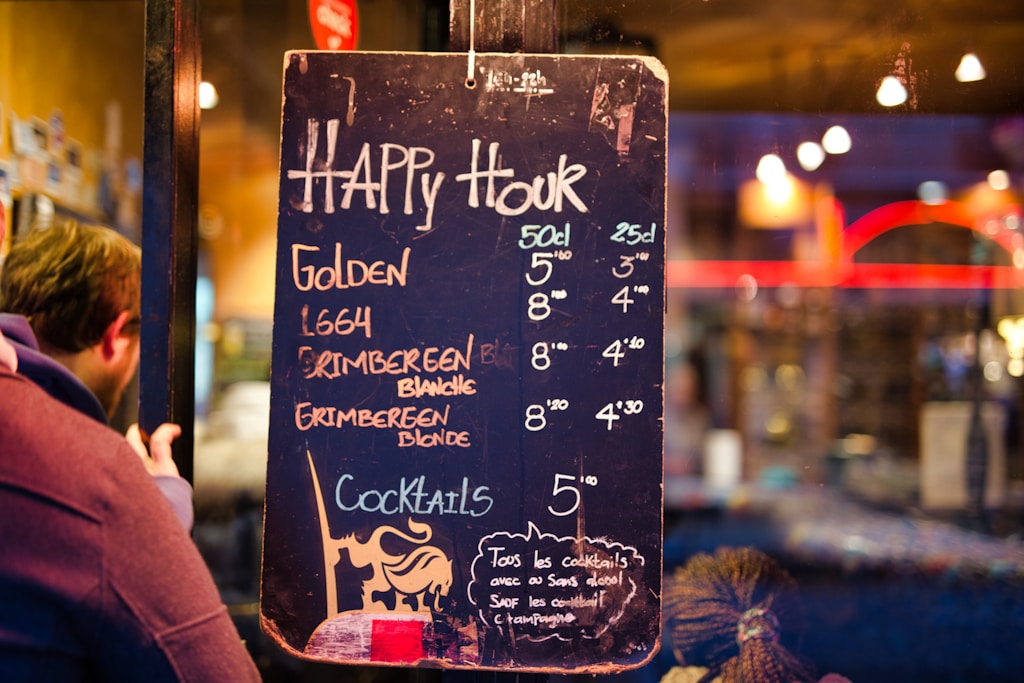 16h-22h
HAPPy HOUR
50cl 25cl
GOLDEN 5'00 3'00
8'00 4'00
1664
GRIMBERGEN 8'00 4'10
BLANCHE
GRIMBERGEN 8'20 4'30
BLONDE
COCKTAILS 5'00
Tous les cocktails
avec ou Sans alcool
SAUF les cocktail